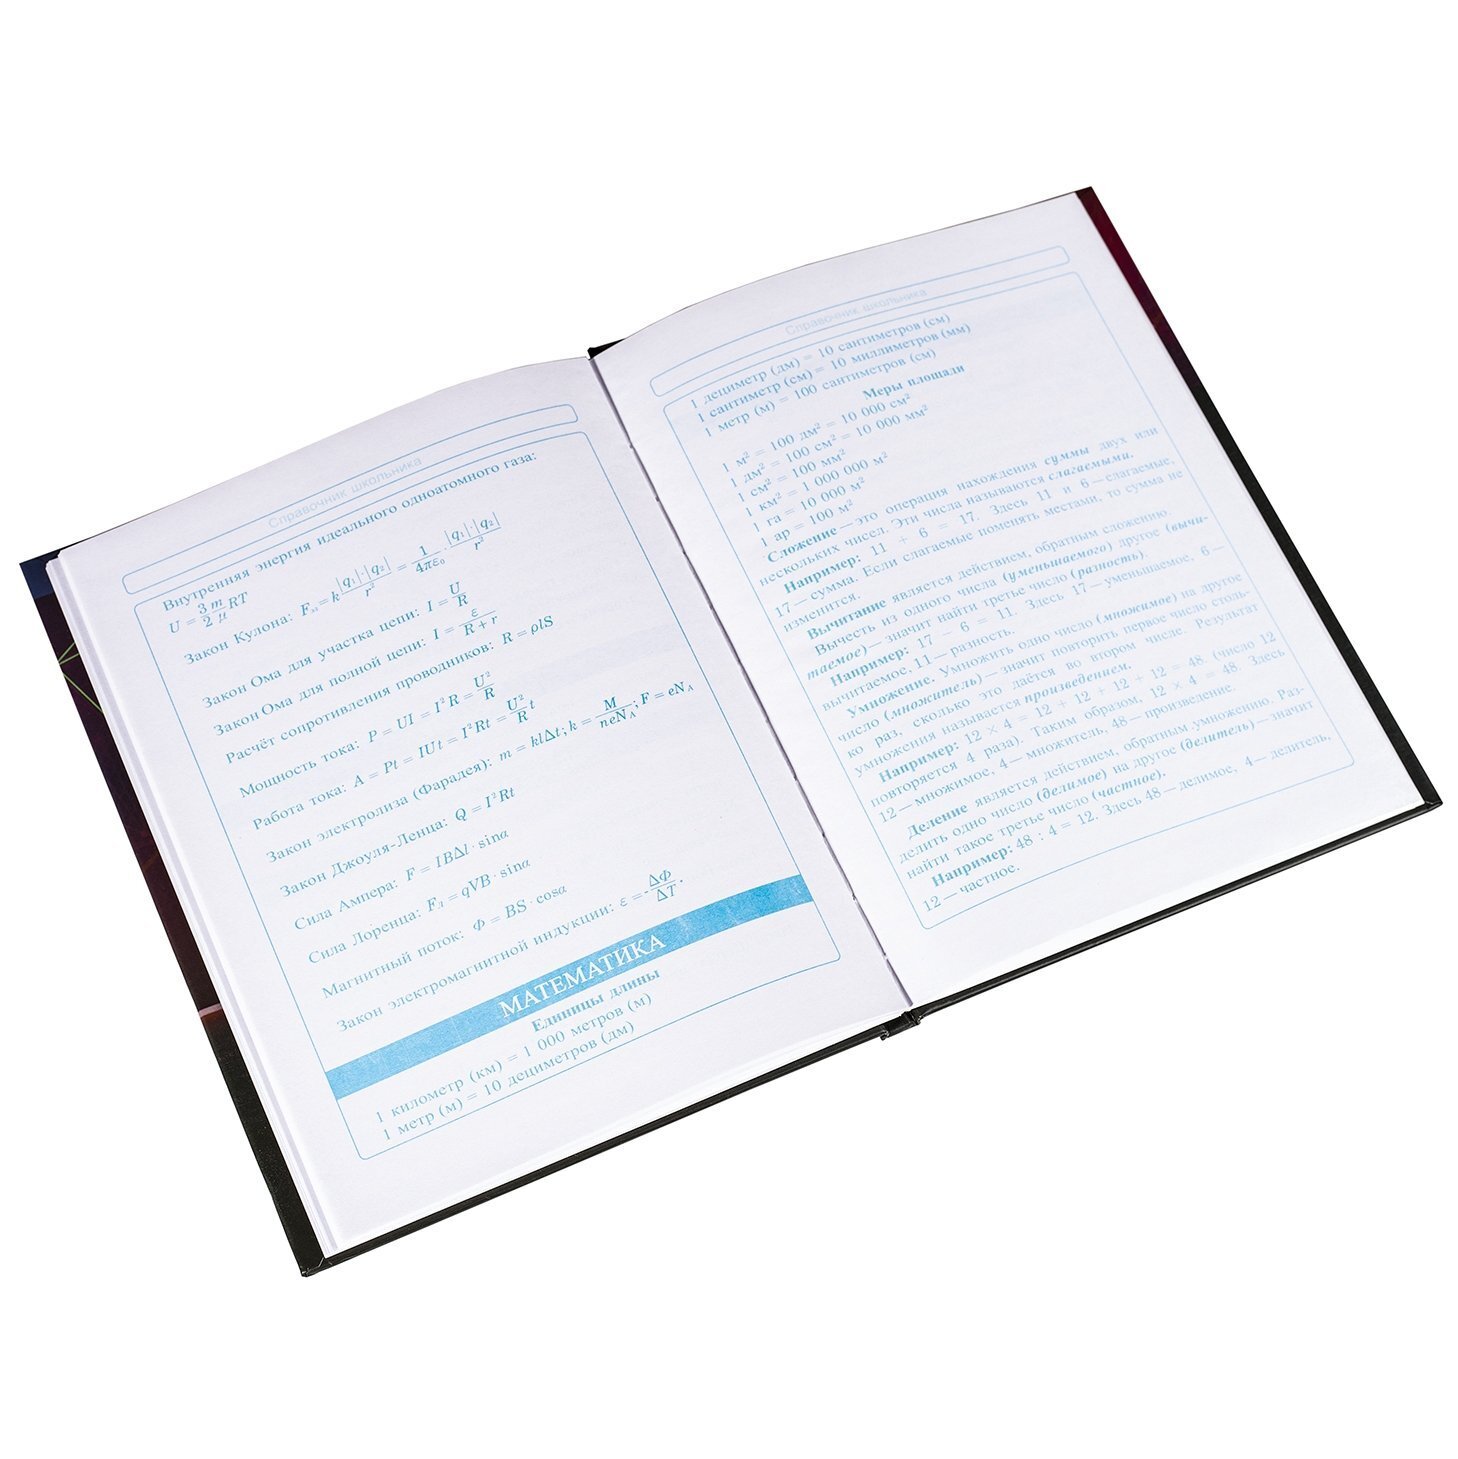 Справочник школьника
Внутренняя энергия идеального одноатомного газа:
U = 3/2 m/μ RT
Закон Кулона: Fэл = k |q₁|·|q₂|/r² = 1/4πε₀ · |q₁|·|q₂|/r²
Закон Ома для участка цепи: I = U/R
Закон Ома для полной цепи: I = ε/R + r
Расчёт сопротивления проводников: R = ρlS
Мощность тока: P = UI = I²R = U²/R
Работа тока: A = Pt = IUt = I²Rt = U²/R t
Закон электролиза (Фарадея): m = klΔt; k = M/neNA; F = eNA
Закон Джоуля-Ленца: Q = I²Rt
Сила Ампера: F = IBΔl · sinα
Сила Лоренца: Fл = qVB · sinα
Магнитный поток: Ф = BS · cosα
Закон электромагнитной индукции: ε = - ΔФ/ΔT.
МАТЕМАТИКА
Единицы длины
1 километр (км) = 1 000 метров (м)
1 метр (м) = 10 дециметров (дм)
Справочник школьника
1 дециметр (дм) = 10 сантиметров (см)
1 сантиметр (см) = 10 миллиметров (мм)
1 метр (м) = 100 сантиметров (см)
Меры площади
1 м² = 100 дм² = 10 000 см²
1 дм² = 100 см² = 10 000 мм²
1 см² = 100 мм²
1 км² = 1 000 000 м²
1 га = 10 000 м²
1 ар = 100 м²
Сложение — это операция нахождения суммы двух или
нескольких чисел. Эти числа называются слагаемыми.
Например: 11 + 6 = 17. Здесь 11 и 6 — слагаемые,
17 — сумма. Если слагаемые поменять местами, то сумма не
изменится.
Вычитание является действием, обратным сложению.
Вычесть из одного числа (уменьшаемого) другое (вычи-
таемое) — значит найти третье число (разность).
Например: 17 − 6 = 11. Здесь 17 — уменьшаемое, 6 —
вычитаемое, 11 — разность.
Умножение. Умножить одно число (множимое) на другое
число (множитель) — значит повторить первое число столь-
ко раз, сколько это даётся во втором числе. Результат
умножения называется произведением.
Например: 12 × 4 = 12 + 12 + 12 + 12 = 48 (число 12
повторяется 4 раза). Таким образом, 12 × 4 = 48. Здесь
12 — множимое, 4 — множитель, 48 — произведение.
Деление является действием, обратным умножению. Раз-
делить одно число (делимое) на другое (делитель) — значит
найти такое третье число (частное).
Например: 48 : 4 = 12. Здесь 48 — делимое, 4 — делитель,
12 — частное.